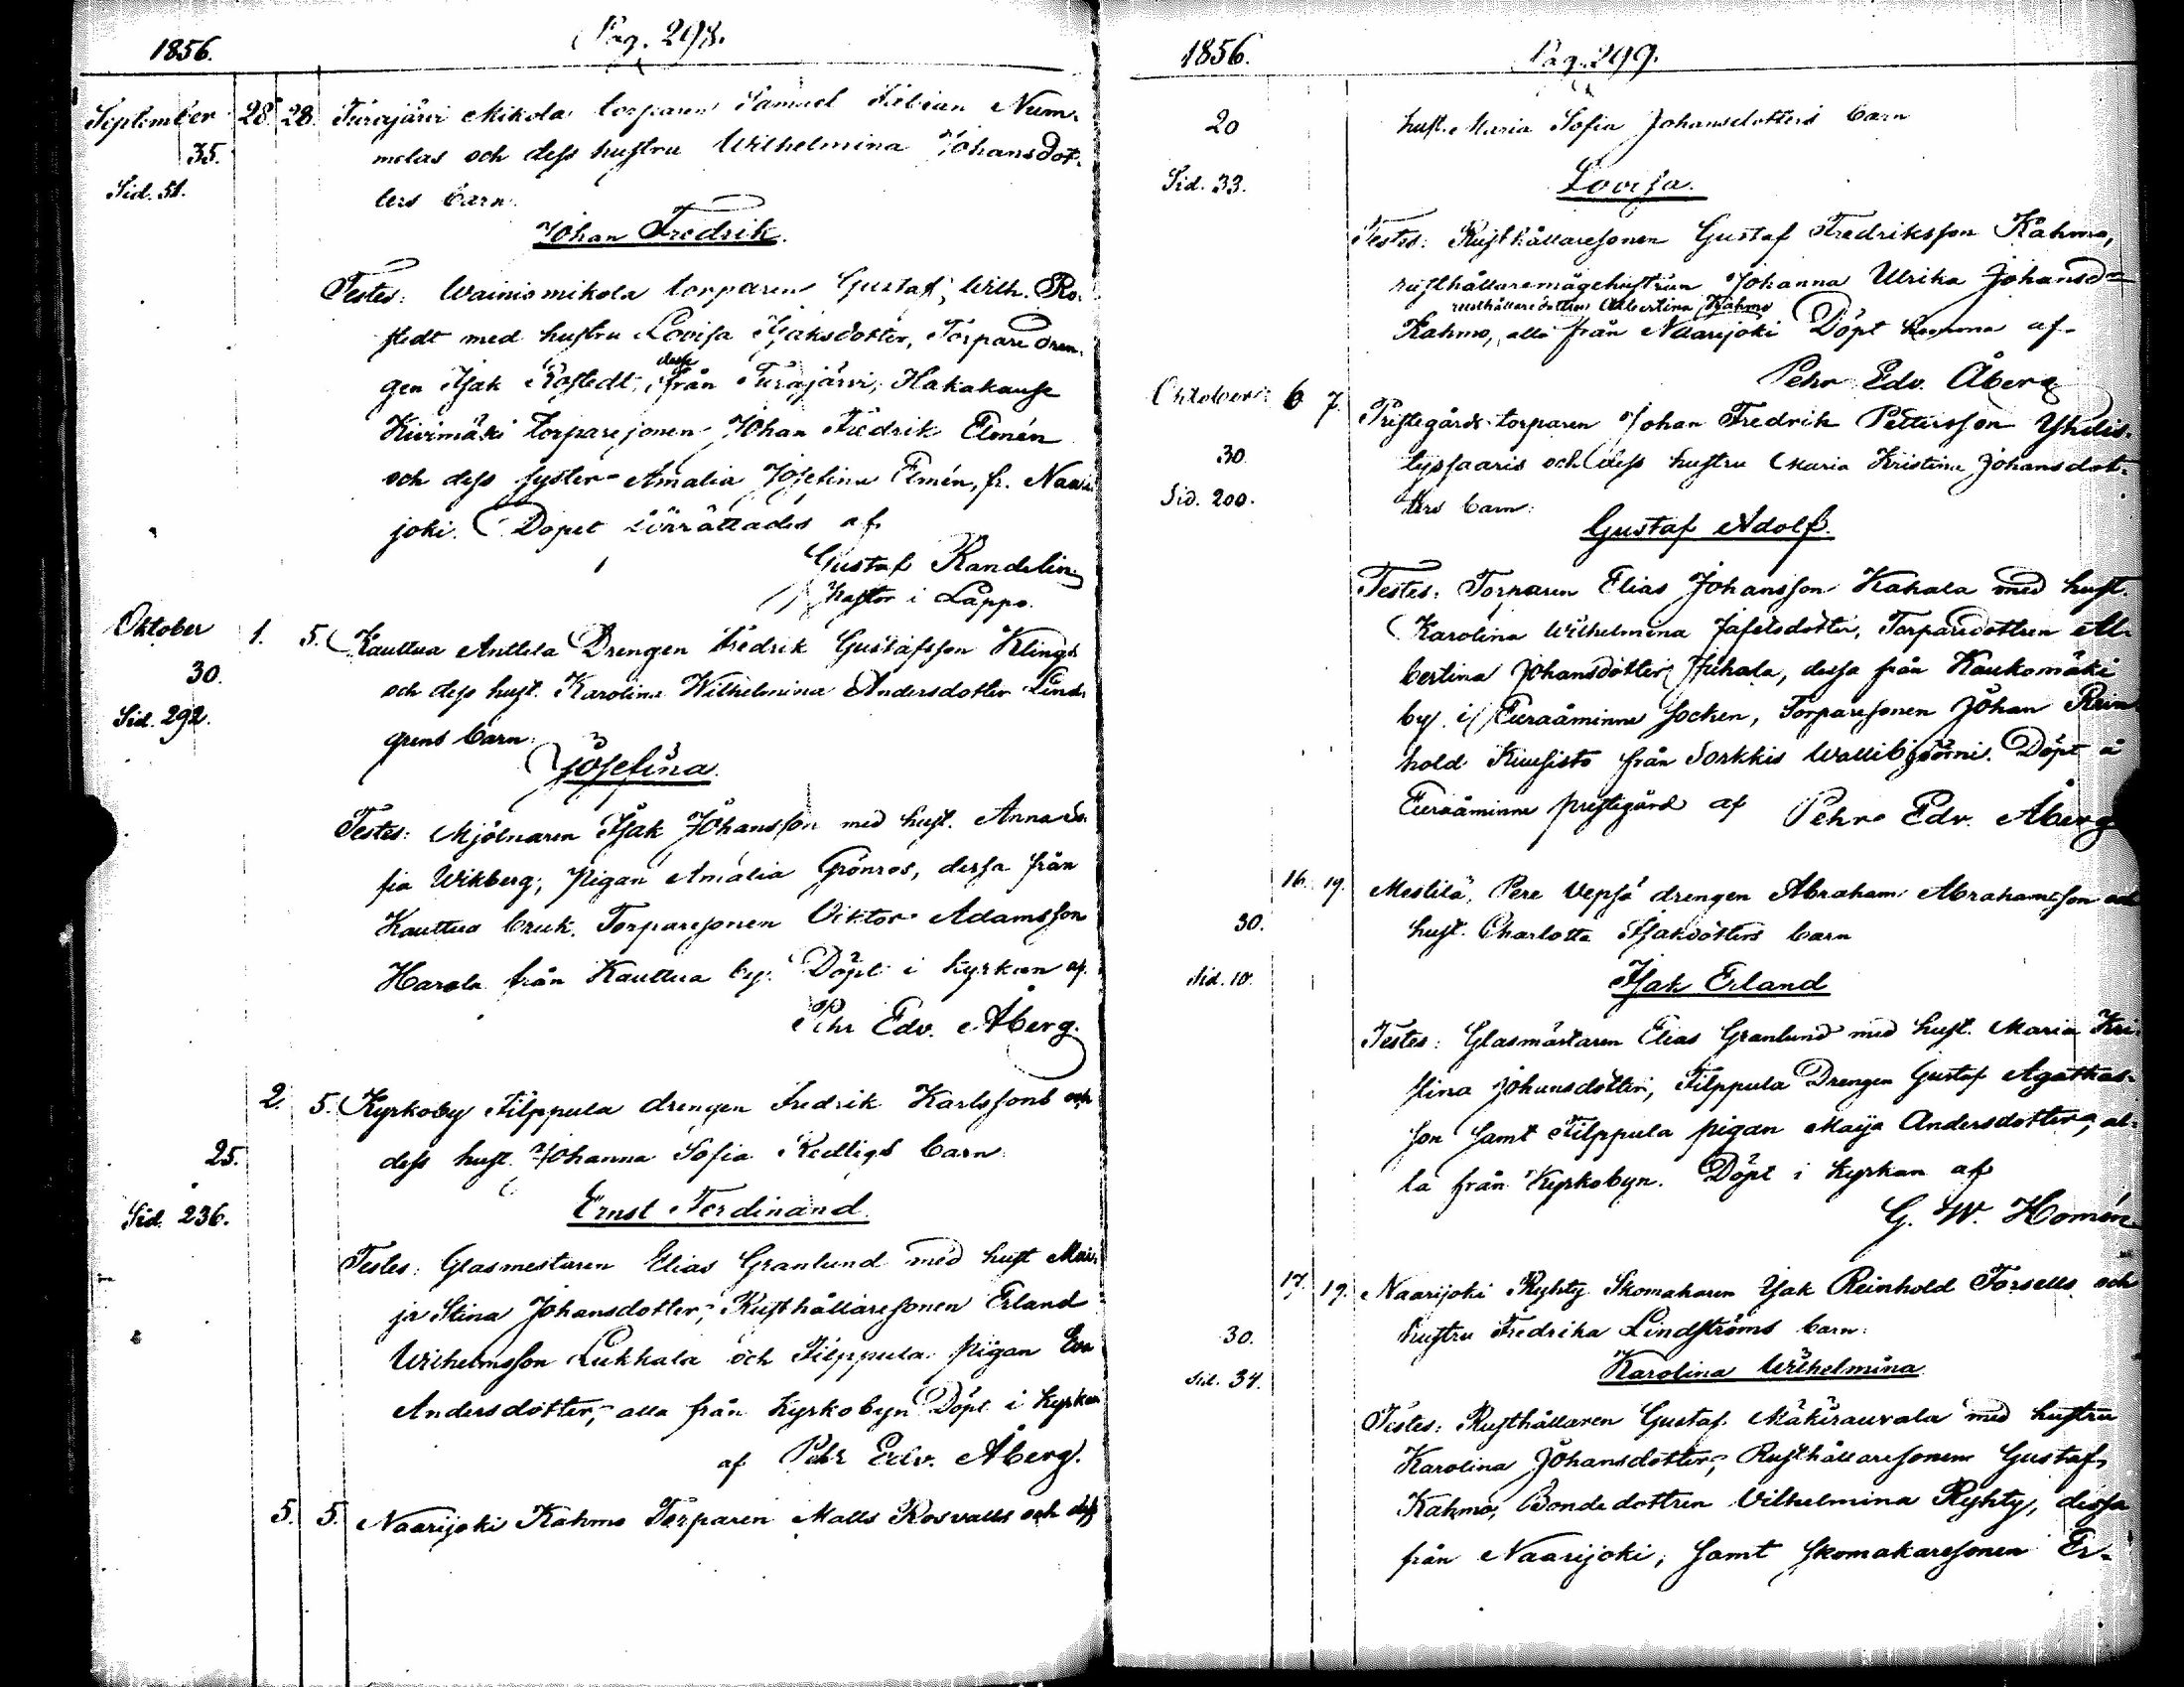 1856.
Pag. 298.
September 28. 28. Turajärvi Mikola torparen Samuel Fabian Num-
35.
melas och dess hustru Wilhelmina Johansdot-
Sid. 51.
ters barn.
Johan Fredrik.
Testes: Wainiomikola torparen Gustaf Wilh. Ro-
stedt med hustru Lovisa Isaksdotter, Torparedren-
gen Isak Rostedt, desse från Turajärvi, Hakakause
Kivimäki torparesonen Johan Fredrik Elmén
och dess syster Amalia Josefina Elmén, fr. Naari-
joki. Dopet förrättades af
Gustaf Randelin
Pastor i Lappo.
Oktober 1. 5. Kauttua Anttila Drengen Fredrik Gustafsson Klings
30.
och dess hust. Karolina Wilhelmina Andersdotter Lind-
Sid. 292.
grens barn:
Josefina.
Testes: Mjölnaren Isak Johansson med hust. Anna So-
fia Wikberg; Pigan Amalia Grönros, dessa från
Kauttua bruk. Torparesonen Viktor Adamsson
Harola från Kauttua by. Döpt i kyrkan af
Pehr Edv. Åberg.
2. 5. Kyrkoby Filppula drengen Fredrik Karlssons och
25.
dess hust. Johanna Sofia Redligs barn
Sid. 236.
Ernst Ferdinand.
Testes: Glasmestaren Elias Granlund med hust Mai-
ja Stina Johansdotter; Rusthållaresonen Erland
Wilhelmsson Lukkala och Filppula pigan Eva
Andersdotter, alla från Kyrkobyn Döpt i kyrkan
af Pehr Edv. Åberg.
5. 5. Naarijoki Kahmo Torparen Matts Rosvalls och dess
1856.
Pag. 299.
20
hust. Maria Sofia Johansdotters barn
Sid. 33.
Lovisa.
Testes: Rusthållaresonen Gustaf Fredriksson Kahmo,
rusthållaremågehustrun Johanna Ulrika Johansd=
rusthållaredottren Albertina Kahmo
Kahmo, alla från Naarijoki Döpt hemma af
Pehr Edv. Åberg
Oktober 6 7. Prestegårds torparen Johan Fredrik Pettersson Yhdis-
30.
tyssaaris och dess hustru Maria Kristina Johansdot-
Sid. 200.
ters barn:
Gustaf Adolf.
Testes: Torparen Elias Johansson Kahala med hust.
Karolina Wilhelmina Jafetsdotter, Torparedottren Al-
bertina Johansdotter Juhala, dessa från Kaukomäki
by i Euraåminne socken, Torparesonen Johan Rein-
hold Kuusisto från Sorkkis Wallibjörni. Döpt å
Euraåminne prestegård af Pehr Edv. Åberg
16. 19. Mestilä, Pere Vepsä drengen Abraham Abrahamsson och
30.
hust. Charlotta Isaksdotters barn
Sid. 10.
Isak Erland
Testes: Glasmästaren Elias Granlund med hust. Maria Kri-
stina Johansdotter, Filppula Drengen Gustaf Agathas-
son samt Filppula pigan Maija Andersdotter, al-
la från Kyrkobyn. Döpt i kyrkan af
G. W. Homén
17. 19. Naarijoki Ryhty Skomakaren Isak Reinhold Forsells och
30.
hustru Fredrika Lindströms barn:
Sid. 34.
Karolina Wilhelmina
Testes: Rusthållaren Gustaf Mäkirauvala med hustru
Karolina Johansdotter; Rusthållaresonen Gustaf
Kahmo, Bondedottren Vilhelmina Ryhty, dessa
från Naarijoki, samt skomakaresonen Er-